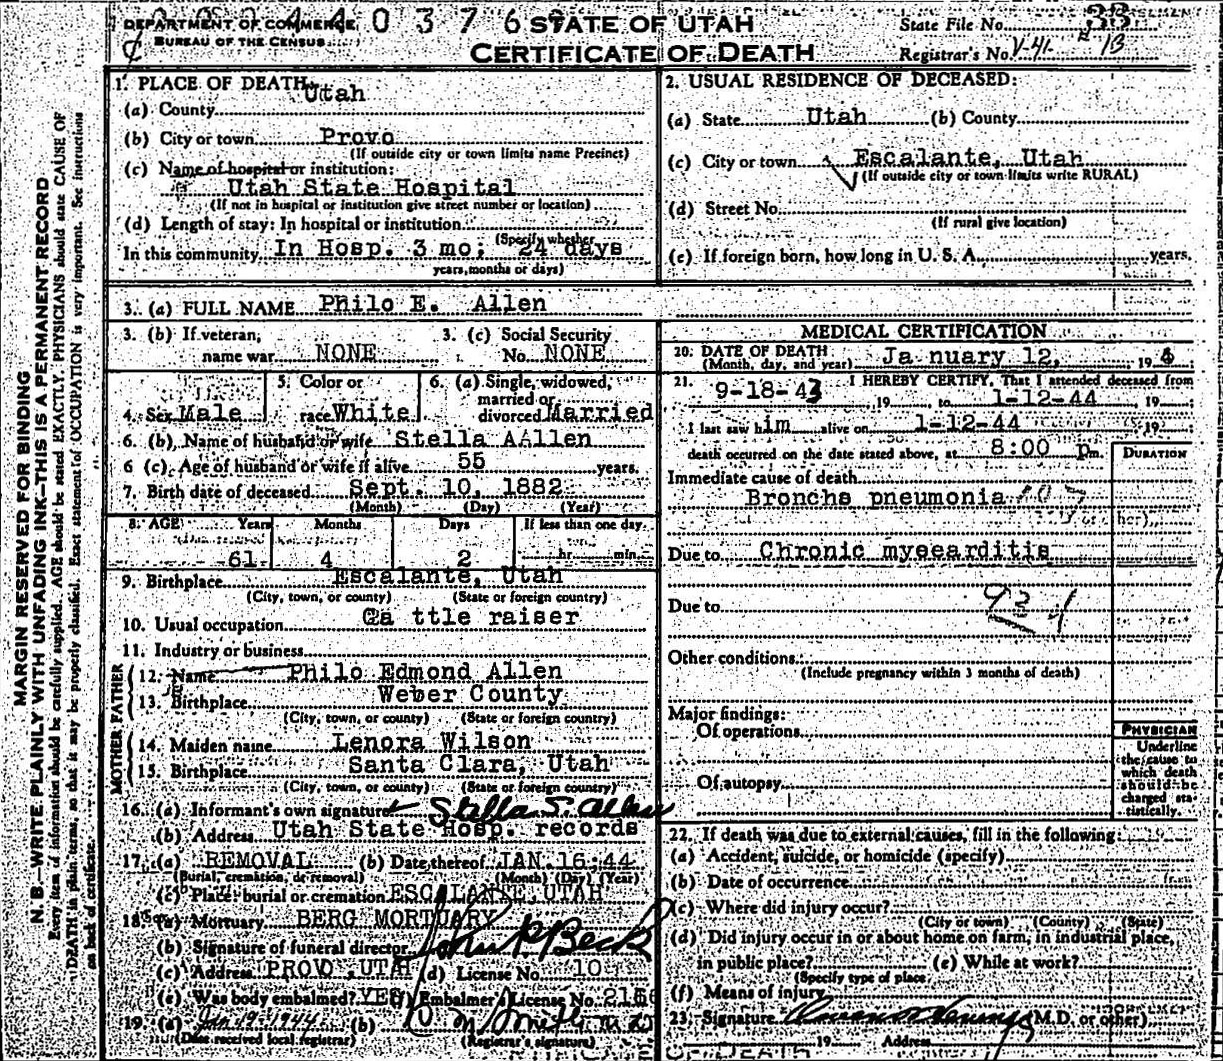 DEPARTMENT OF COMMERCE
BUREAU OF THE CENSUS
STATE OF UTAH
CERTIFICATE OF DEATH
State File No. 33
Registrar's No. V-41 R-13
MARGIN RESERVED FOR BINDING
N. B.—WRITE PLAINLY WITH UNFADING INK—THIS IS A PERMANENT RECORD
Every item of information should be carefully supplied. AGE should be stated EXACTLY. PHYSICIANS should state CAUSE OF
DEATH in plain terms, so that it may be properly classified. Exact statement of OCCUPATION is very important. See instructions
on back of certificate.
1. PLACE OF DEATH:
(a) County Utah
(b) City or town Provo
(If outside city or town limits name Precinct)
(c) Name of hospital or institution:
Utah State Hospital
(If not in hospital or institution give street number or location)
(d) Length of stay: In hospital or institution
(Specify whether
In this community In Hosp. 3 mo; 24 days
years, months or days)
2. USUAL RESIDENCE OF DECEASED:
(a) State Utah (b) County
(c) City or town Escalante, Utah
(If outside city or town limits write RURAL)
(d) Street No.
(If rural give location)
(e) If foreign born, how long in U. S. A. years.
3. (a) FULL NAME Philo E. Allen
3. (b) If veteran, name war NONE
3. (c) Social Security No. NONE
4. Sex Male
5. Color or race White
6. (a) Single, widowed, married or divorced Married
6. (b) Name of husband or wife Stella AAllen
6 (c). Age of husband or wife if alive 55 years.
7. Birth date of deceased Sept. 10, 1882
(Month) (Day) (Year)
8. AGE Years Months Days If less than one day
61 4 2 hr. min.
9. Birthplace Escalante, Utah
(City, town, or county) (State or foreign country)
10. Usual occupation Ca ttle raiser
11. Industry or business
FATHER
12. Name Philo Edmond Allen
13. Birthplace Weber County
(City, town, or county) (State or foreign country)
MOTHER
14. Maiden name Lenora Wilson
15. Birthplace Santa Clara, Utah
(City, town, or county) (State or foreign country)
16. (a) Informant's own signature Stella S. Allen
(b) Address Utah State Hosp. records
17. (a) REMOVAL (b) Date thereof JAN. 16-44
(Burial, cremation, or removal) (Month) (Day) (Year)
(c) Place: burial or cremation ESCALANTE, UTAH
18. (a) Mortuary BERG MORTUARY
(b) Signature of funeral director John P Beck
(c) Address PROVO, UTAH (d) License No. 10
(e) Was body embalmed? YES (f) Embalmer's License No.
19. (a) Jan 19-1944 (b)
(Date received local registrar) (Registrar's signature)
MEDICAL CERTIFICATION
20. DATE OF DEATH Ja nuary 12, 19
(Month, day, and year)
21. I HEREBY CERTIFY, That I attended deceased from
9-18-43 19 to 1-12-44, 19
I last saw him alive on 1-12-44 19
death occurred on the date stated above, at 8:00 pm.
DURATION
Immediate cause of death
Broncho pneumonia 107
Due to Chronic myecarditis
Due to
Other conditions
(Include pregnancy within 3 months of death)
Major findings:
Of operations
Of autopsy
PHYSICIAN
Underline
the cause to
which death
should be
charged sta-
tistically.
22. If death was due to external causes, fill in the following:
(a) Accident, suicide, or homicide (specify)
(b) Date of occurrence
(c) Where did injury occur?
(City or town) (County) (State)
(d) Did injury occur in or about home on farm, in industrial place,
in public place? (e) While at work?
(Specify type of place)
(f) Means of injury
23. Signature (M.D. or other)
19 Address